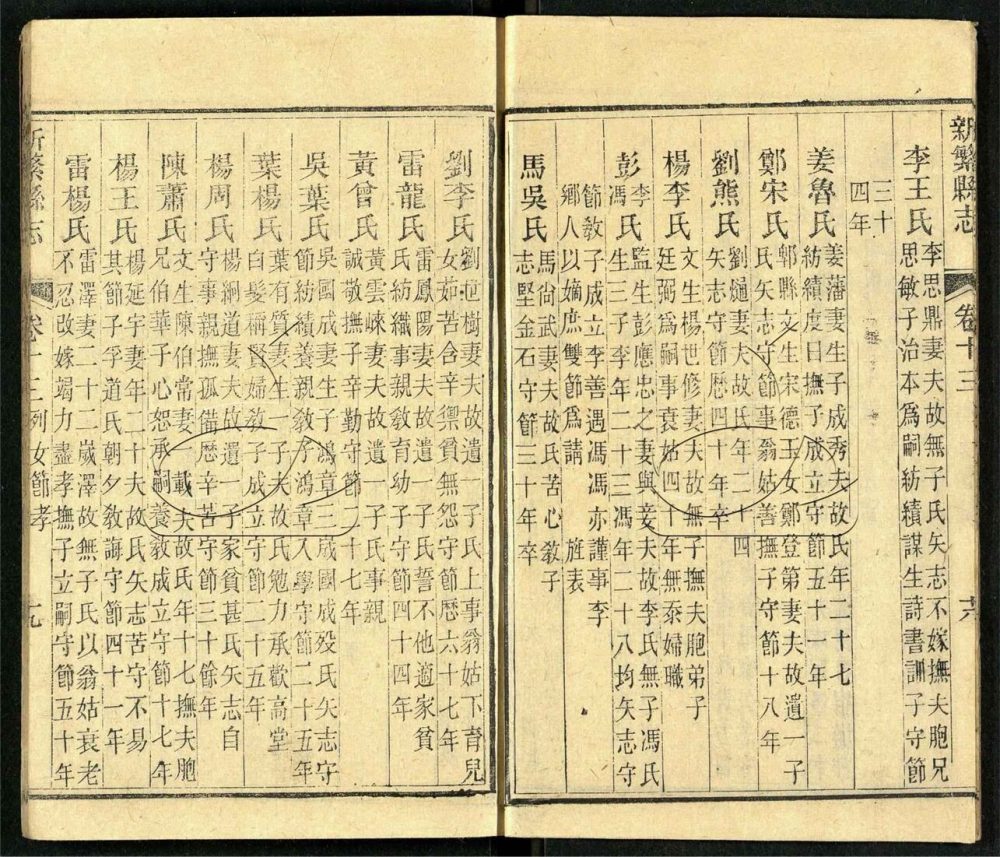 新繁縣志 卷十三 六
李王氏 李思鼎妻夫故無子氏矢志不嫁撫夫胞兄
思敏子治本爲嗣紡績謀生詩書訓子守節
三十
四年
姜魯氏 姜藩妻生子成秀夫故氏年二十七
紡績度日撫子成立守節五十一年
鄭宋氏 郫縣文生宋德玉女鄭登第妻夫故遺一子
氏矢志守節事翁姑善撫子守節十八年
劉熊氏 劉燧妻夫故氏年二十四
矢志守節歷四十年卒
楊李氏 文生楊世修妻夫故無子撫夫胞弟子
廷弼爲嗣事衰姑四十年無忝婦職
彭李馮氏 監生彭應忠之妻與妾夫故李氏無子馮氏
生三子李年二十三馮年二十八均矢志守
節教子成立李善遇馮馮亦謹事李
鄉人以嫡庶雙節爲請 旌表
馬吳氏 馬尚武妻夫故氏苦心教子
志堅金石守節三十年卒
劉李氏 劉世樹妻夫故遺一子氏上事翁姑下育兒
女茹苦含辛禦貧無怨守節歷六十七年
雷龍氏 雷鳳陽妻夫故遺一子氏誓不他適家貧
氏紡織事親教育幼子守節四十四年
黃曾氏 黃雲崍妻夫故遺一子氏事親
誠敬撫子辛勤守節二十七年
吳葉氏 吳國成妻生子鴻章三歲國成歿氏矢志守
節紡績養親教子鴻章入學守節二十五年
葉楊氏 葉有質妻生一子夫故氏勉力承歡高堂
白髮稱賢婦教子成立守節二十五年
楊周氏 楊嗣道妻夫故遺一子家貧甚氏矢志自
守事親撫孤備歷辛苦守節三十餘年
陳蕭氏 文生陳伯常妻一載夫故氏年十七撫夫胞
兄伯華子心恕承嗣養教成立守節十七年
楊王氏 楊延宇妻年二十夫故氏矢志苦守不易
其節子孚道氏朝夕教誨守節四十一年
雷楊氏 雷澤妻二十二歲澤故無子氏以翁姑衰老
不忍改嫁竭力盡孝撫子立嗣守節五十年
新繁縣志 卷十三 列女節孝 七